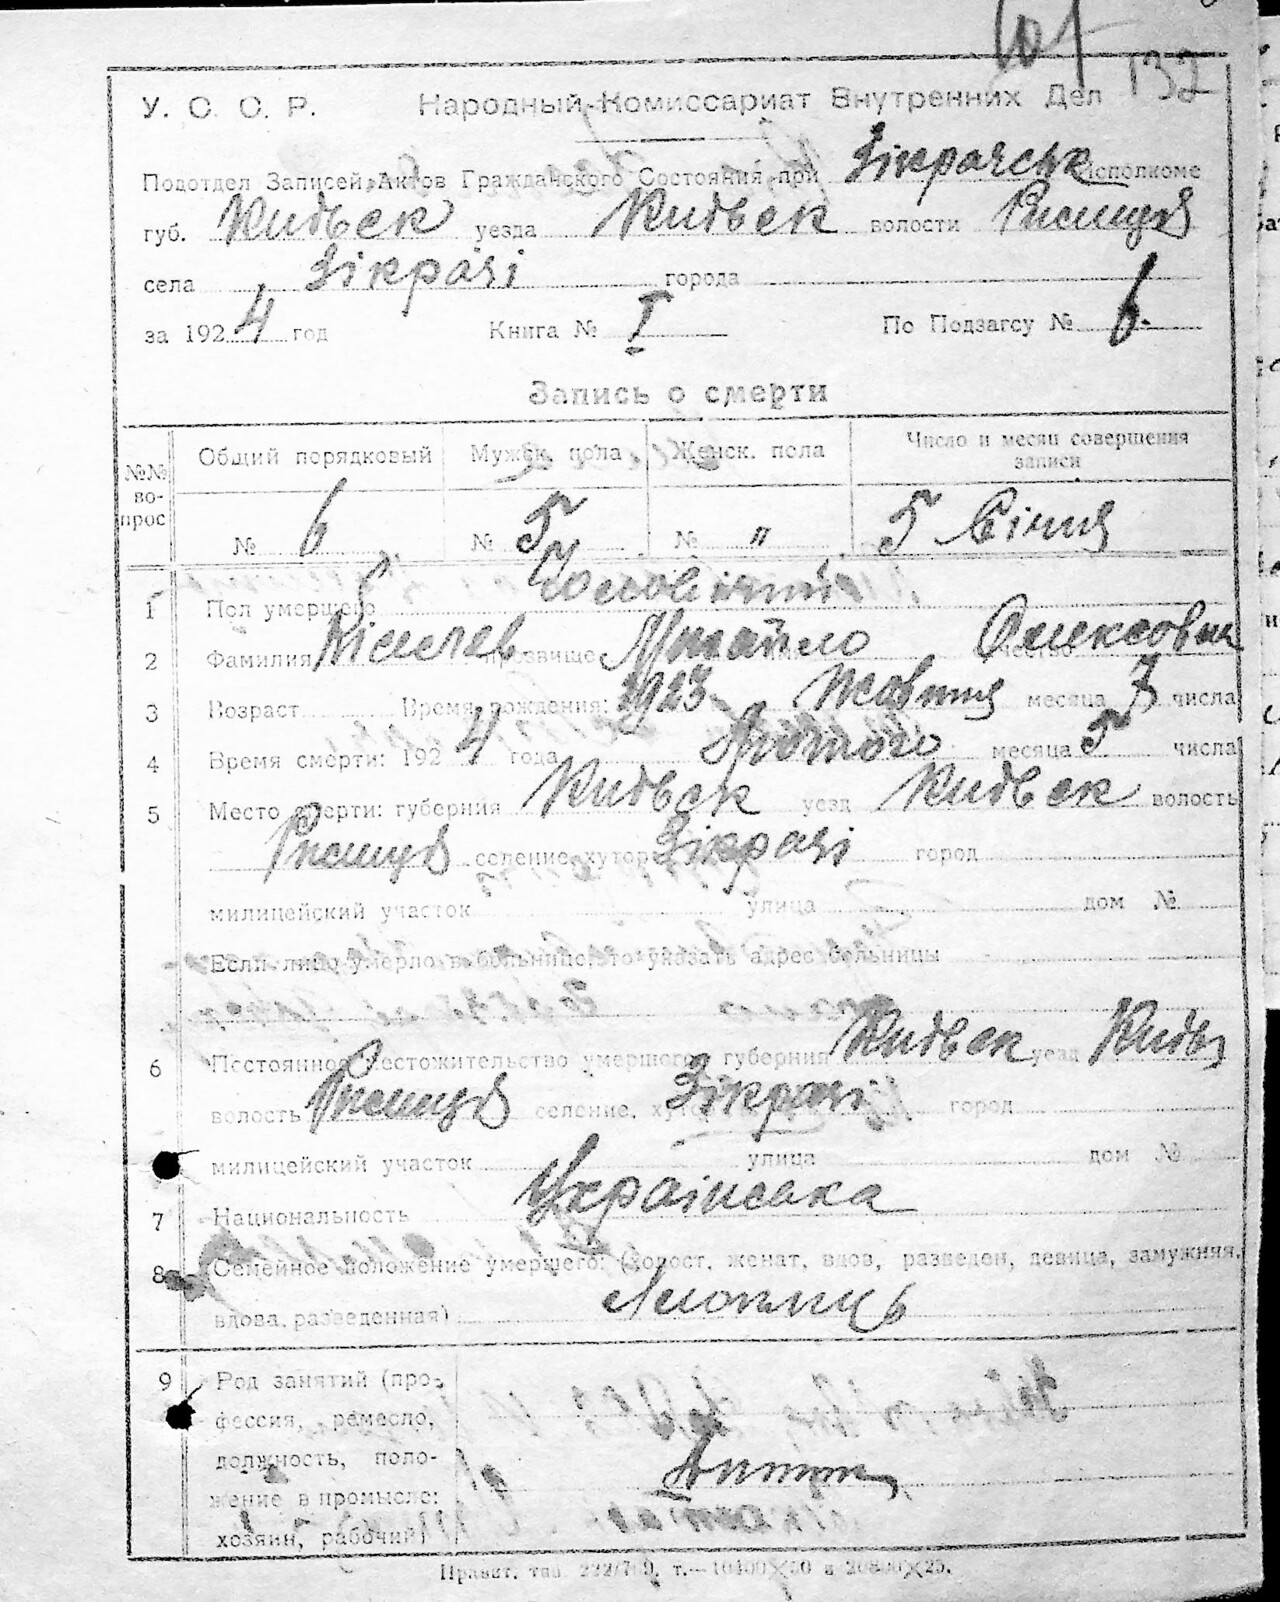 132
У. С. С. Р. Народный Комиссариат Внутренних Дел
Подотдел Записей Актов Гражданского Состояния при Зікрачськ Исполкоме
губ. Киӥвськ уезда Киӥвськ волости Ржищів
села Зікрачі города
за 1924 год Книга № I По Подзагсу № 6.
Запись о смерти
№№ вопрос Общий порядковый Мужск. пола Женск. пола Число и месяц совершения записи
№ 6 № 5 № " 5 Січня
1 Пол умершего Чоловічий
2 Фамилия Кіселев прозвище Михайло Олексович
3 Возраст Время рождения: 1923 Жовтня месяца 7 числа
4 Время смерти: 1924 года Лютого месяца 5 числа
5 Место смерти: губерния Киӥвськ уезд Киӥвськ волость
селение, хутор Зікрачі город
милицейский участок улица дом №
Если лицо умерло в больнице, то указать адрес больницы
6 Постоянное местожительство умершего: губерния Киӥвськ уезд
волость селение, хутор Зікрачі город
милицейский участок улица дом №
7 Национальность Українська
8 Семейное положение умершего: (холост, женат, вдов, разведен, девица, замужняя,
вдова, разведенная) Хлопець
9 Род занятий (про-
фессия, ремесло,
должность, поло-
жение в промысле:
хозяин, рабочий)